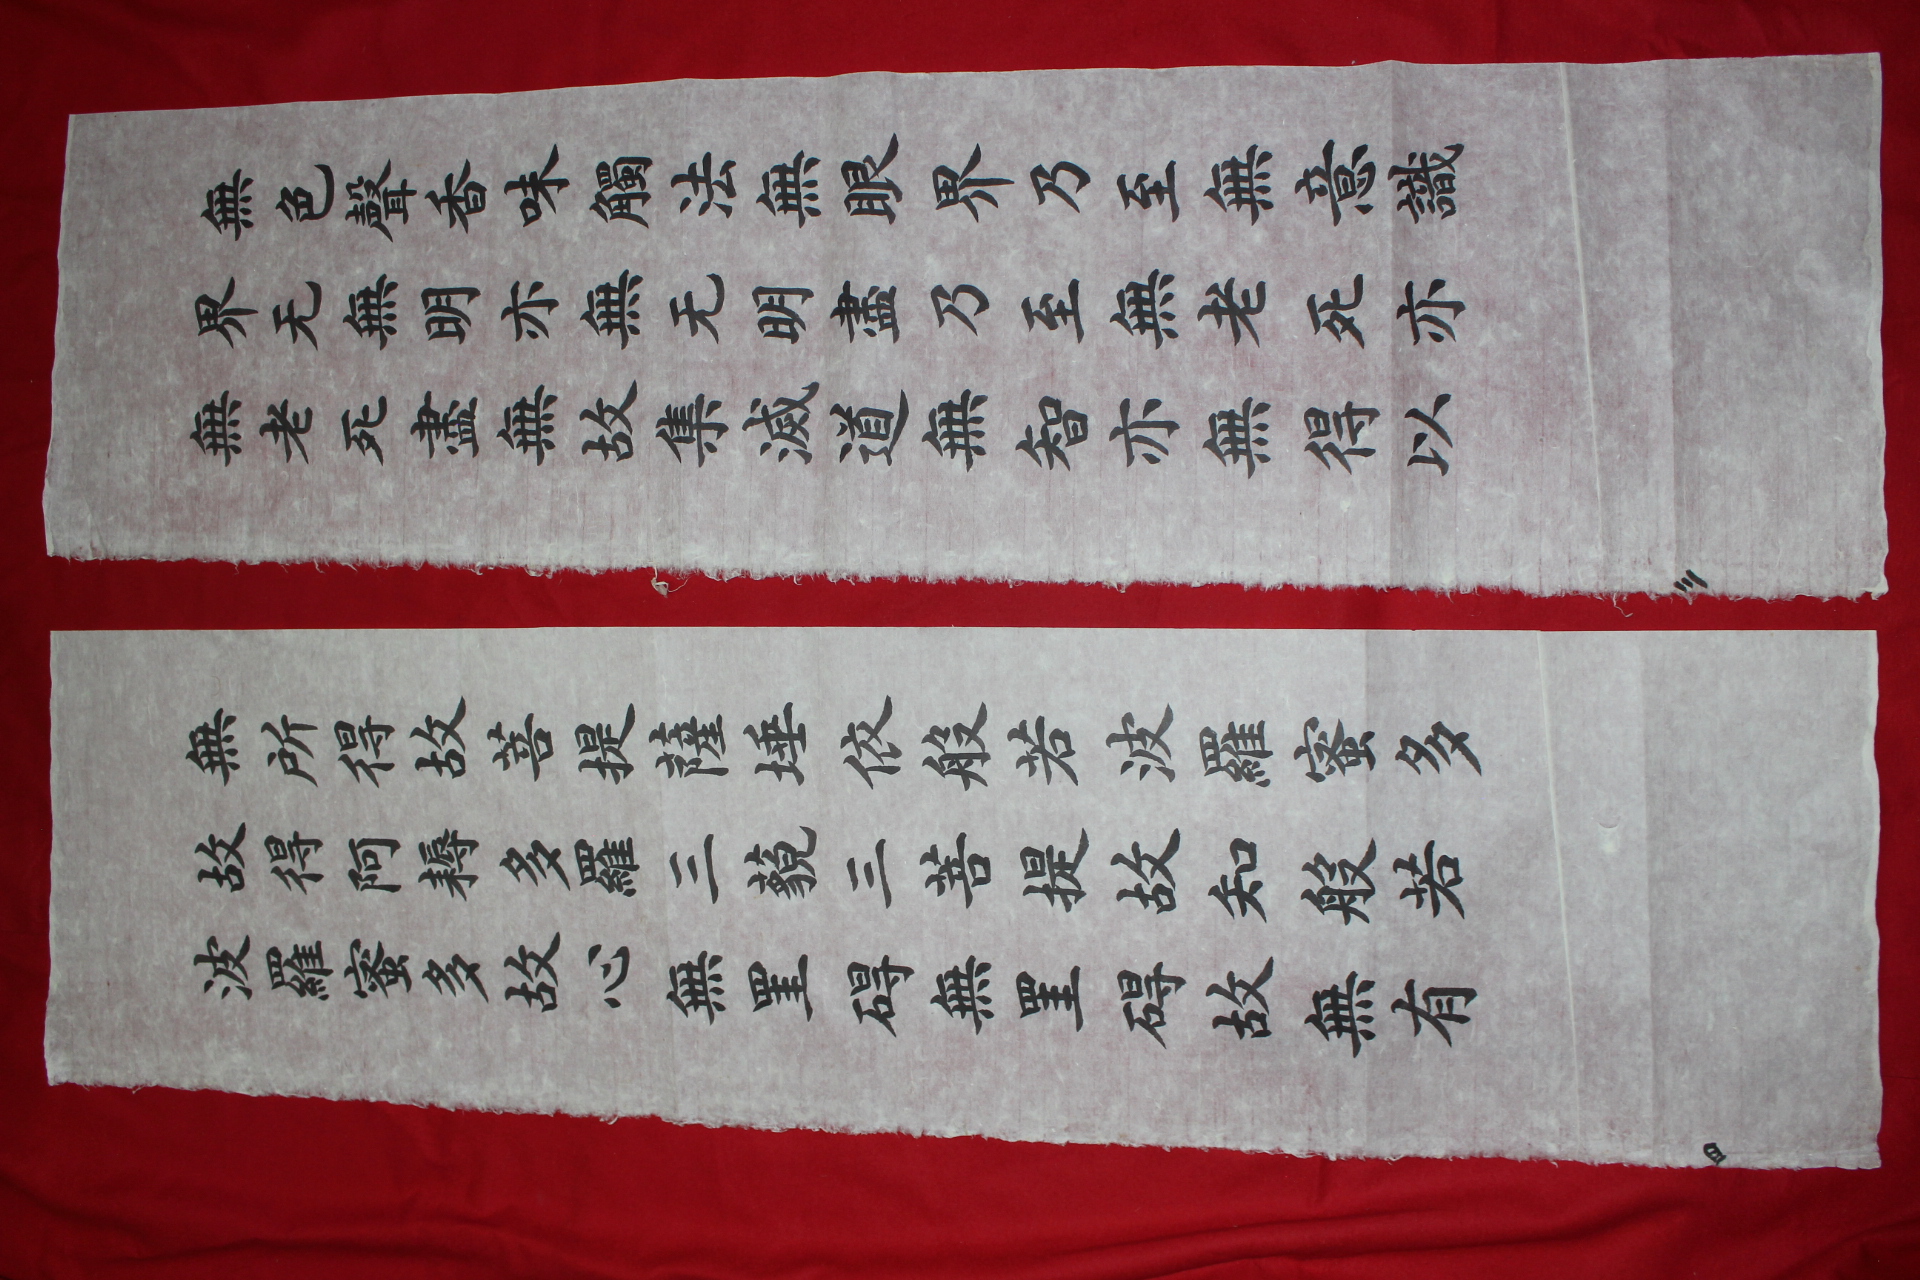 無色聲香味觸法無眼界乃至無意識
界无無明亦無无明盡乃至無老死亦
無老死盡無故集滅道無智亦無得以
三
無所得故菩提薩埵依般若波羅蜜多
故得阿耨多羅三藐三菩提故知般若
波羅蜜多故心無罣碍無罣碍故無有
四